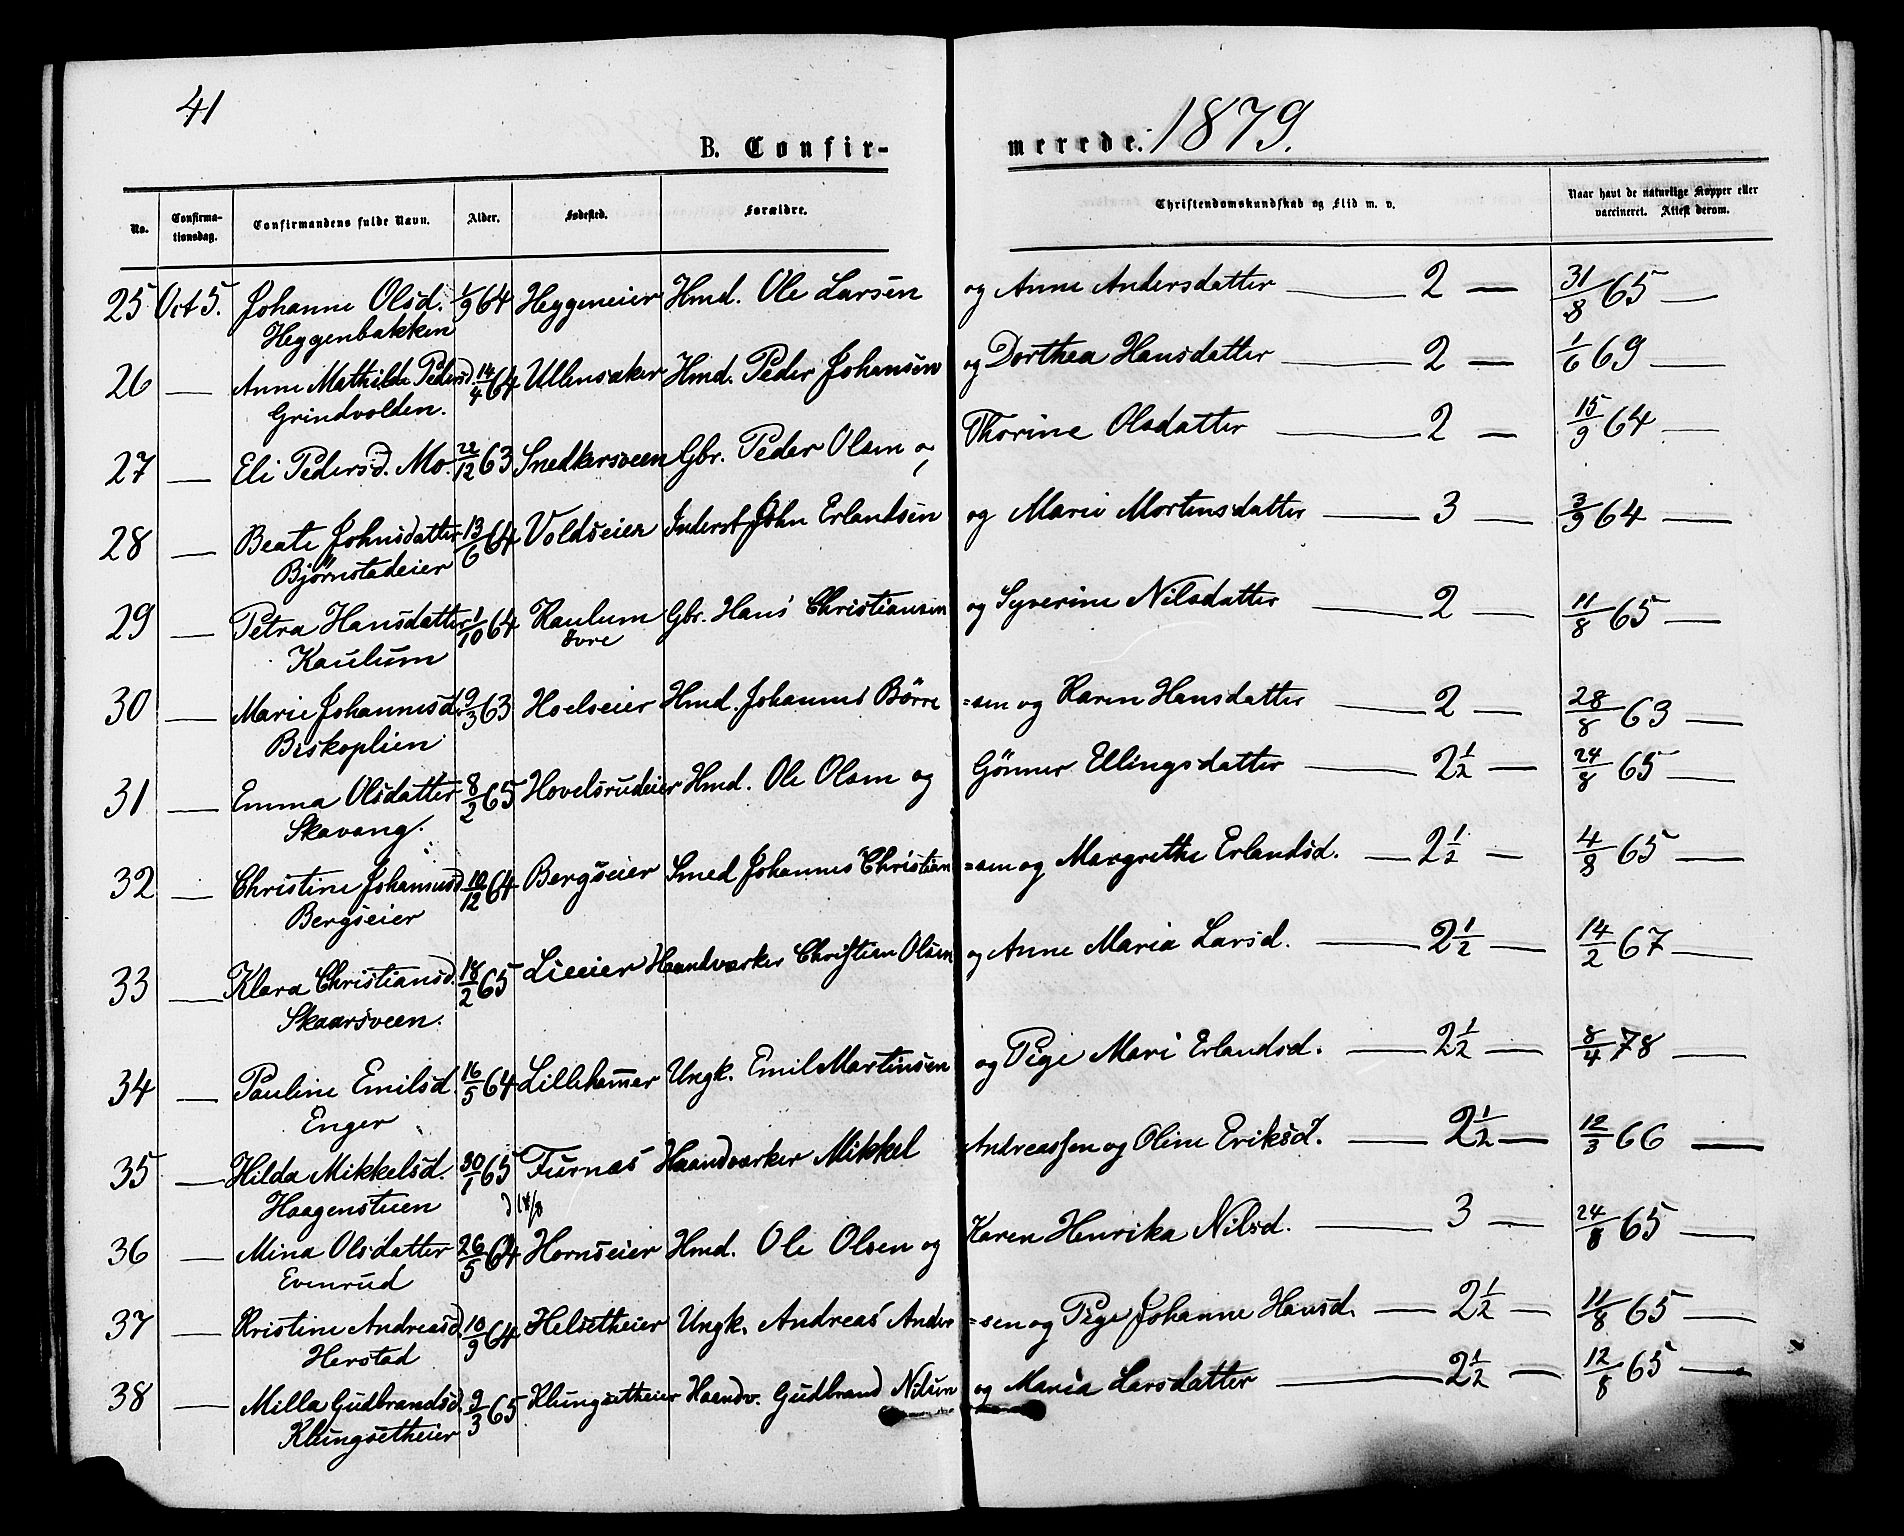 41
B. Confir-
merede. 1879.
No. Confirma-tionsdag. Confirmandens fulde Navn. Alder. Fødested. Forældre. Christendomskundskab og Flid m. v. Naar havt de naturlige Kopper eller vaccineret. Attest derom.
25 Oct 5. Johanne Olsd. 1/9 64 Heggeneier Hmd. Ole Larsen og Anne Andersdatter — 2 — 31/8 65 —
Heggenbakken
26 — Anne Mathilde Pedersd. 14/4 64 Ullensaker Hmd. Peder Johansen og Dorthea Hansdatter — 2 — 1/6 69 —
Grindvolden.
27 — Eli Pedersd. Mo. 22/12 63 Snedkersveen Gbr. Peder Olsen og Thorine Olsdatter — 2 — 15/9 64 —
28 — Beate Johnsdatter 13/6 64 Voldseier Inderst John Erlandsen og Marie Mortensdatter — 3 — 3/9 64 —
Bjørnstadeier
29 — Petra Hansdatter 1/10 64 Kaulum Gbr. Hans Christiansen og Syverine Nilsdatter — 2 — 11/8 65 —
Kaulum øvre
30 — Marie Johannesd. 9/3 63 Hoelseier Hmd. Johannes Börre =sen og Karen Hansdatter — 2 — 28/8 63 —
Biskoplien
31 — Emma Olsdatter 8/2 65 Hovelsrudeier Hmd. Ole Olsen og Gönner Ellingsdatter — 2 1/2 — 24/8 65 —
Skavang.
32 — Christine Johannesd. 10/12 64 Bergseier Smed Johannes Christian =sen og Margrethe Erlandsd. — 2 1/2 — 4/8 65 —
Bergseier
33 — Klara Christiansd. 18/2 65 Lieeier Haandværker Christian Olsen og Anne Maria Larsd. — 2 1/2 — 14/2 67 —
Skaarsveen.
34 — Pauline Emilsd. 16/5 64 Lillehammer Ungk. Emil Martinsen og Pige Mari Erlandsd. — 2 1/2 — 8/4 78 —
Enger
35 — Hilda Mikkelsd. 30/1 65 Furnæs Haandværker Mikkel Andreassen og Oline Eriksd. — 2 1/2 — 12/3 66 —
Haagenstuen d 18/8
36 — Mina Olsdatter 26/5 64 Hornseier Hmd. Ole Olsen og Karen Henrika Nilsd. — 3 — 24/8 65 —
Evenrud
37 — Kristine Andreasd. 10/9 64 Helsetheier Ungk. Andreas Anders =sen og Pige Johanne Hansd. — 2 1/2 — 11/8 65 —
Herstad
38 — Milla Gudbrandsd. 9/3 65 Klungsetheier Haandv. Gudbrand Nilsen og Maria Larsdatter — 2 1/2 — 12/8 65 —
Klungsetheier